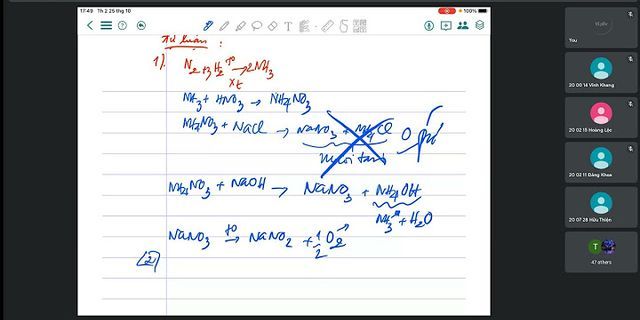 17:49 Th 2 25 thg 10
100%
Tự luận :
1). N₂ + 3H₂ →(t°, xt) 2NH₃
NH₃ + HNO₃ → NH₄NO₃
NH₄NO₃ + NaCl → NaNO₃ + NH₄Cl
muối tan
NH₄NO₃ + NaOH → NaNO₃ + NH₄OH
NH₃ + H₂O
NaNO₃ →(t°) NaNO₂ + 1/2 O₂
(2)
You
20 00 14 Vinh Khang
20 02 15 Hoàng Lộc
20 02 11 Đăng Khoa
20 07 28 Hữu Thiện
T
47 others